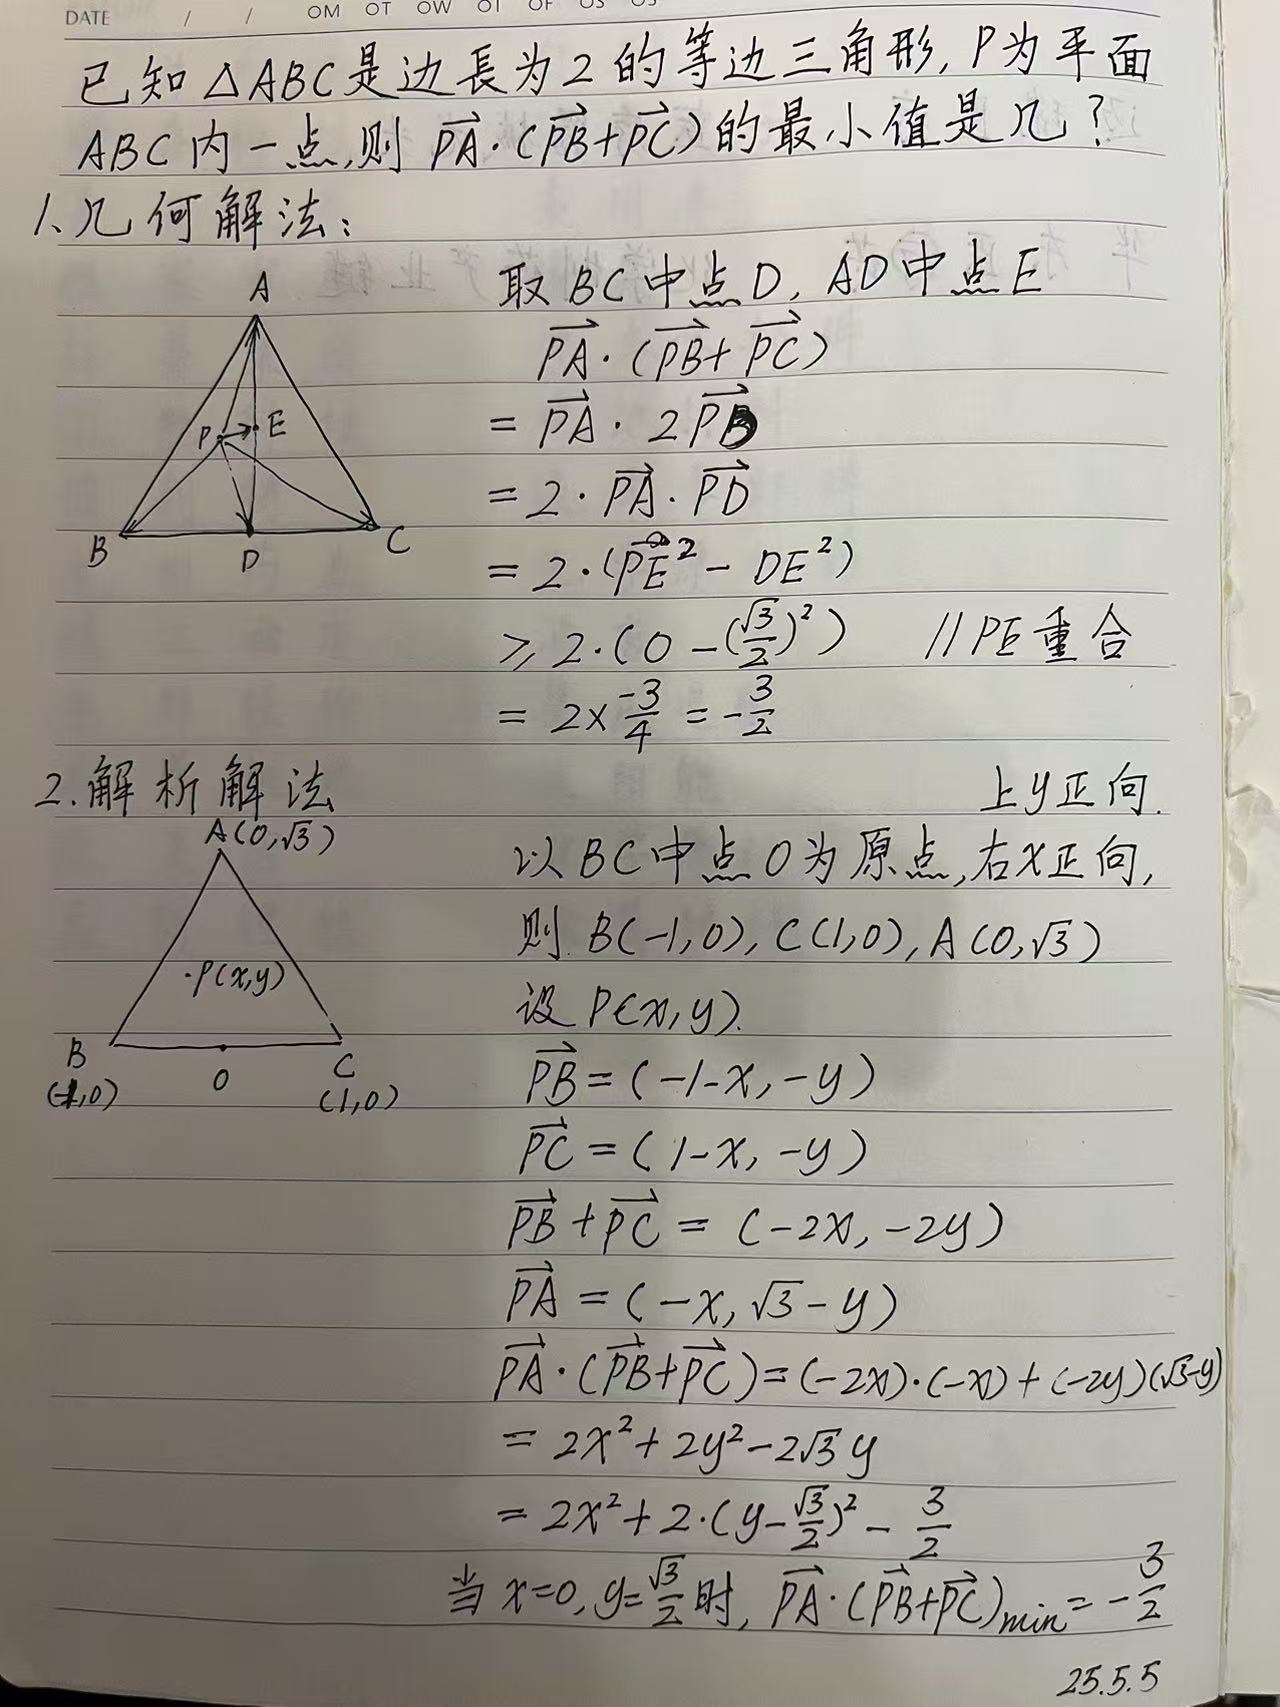 DATE / / OM OT OW OT OF OS OS
已知△ABC是边長为2的等边三角形,P为平面
ABC内一点,则 PA⃗·(PB⃗+PC⃗)的最小值是几?
1、几何解法:
取BC中点D, AD中点E
PA⃗·(PB⃗+PC⃗)
= PA⃗·2PD⃗
= 2·PA⃗·PD⃗
= 2·(PE²-DE²)
≥ 2·(0-(√3/2)²) //PE重合
= 2×-3/4 = -3/2
A
P E
B D C
2.解析解法
上y正向.
以BC中点O为原点,右x正向,
则 B(-1,0), C(1,0), A(0,√3)
设P(x,y).
PB⃗=(-1-x,-y)
PC⃗=(1-x,-y)
PB⃗+PC⃗=(-2x,-2y)
PA⃗=(-x,√3-y)
PA⃗·(PB⃗+PC⃗)=(-2x)·(-x)+(-2y)(√3-y)
= 2x²+2y²-2√3y
= 2x²+2·(y-√3/2)²-3/2
当x=0,y=√3/2时, PA⃗·(PB⃗+PC⃗)min=-3/2
A(0,√3)
·P(x,y)
B O C
(-1,0) (1,0)
25.5.5